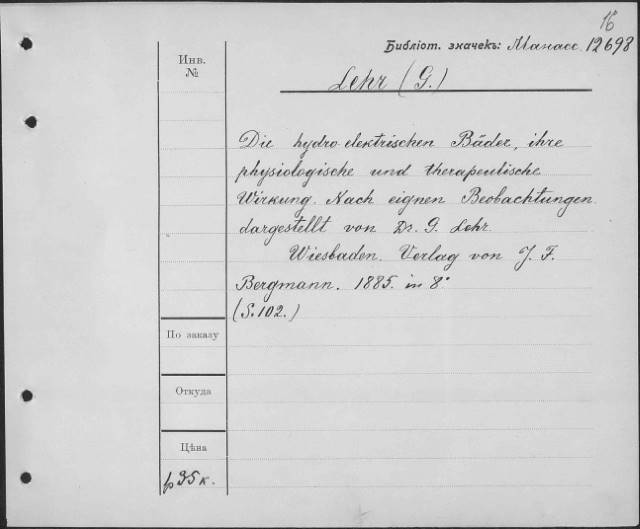 16
Библіот. значекъ: Манасс. 12698
Инв.
№
Lehr (G.)
Die hydroelektrischen Bäder, ihre
physiologische und therapeutische
Wirkung. Nach eignen Beobachtungen
dargestellt von Dr. G. Lehr.
Wiesbaden. Verlag von J. F.
Bergmann. 1885. in 8°
(S. 102.)
По заказу
Откуда
Цѣна
р 35 к.